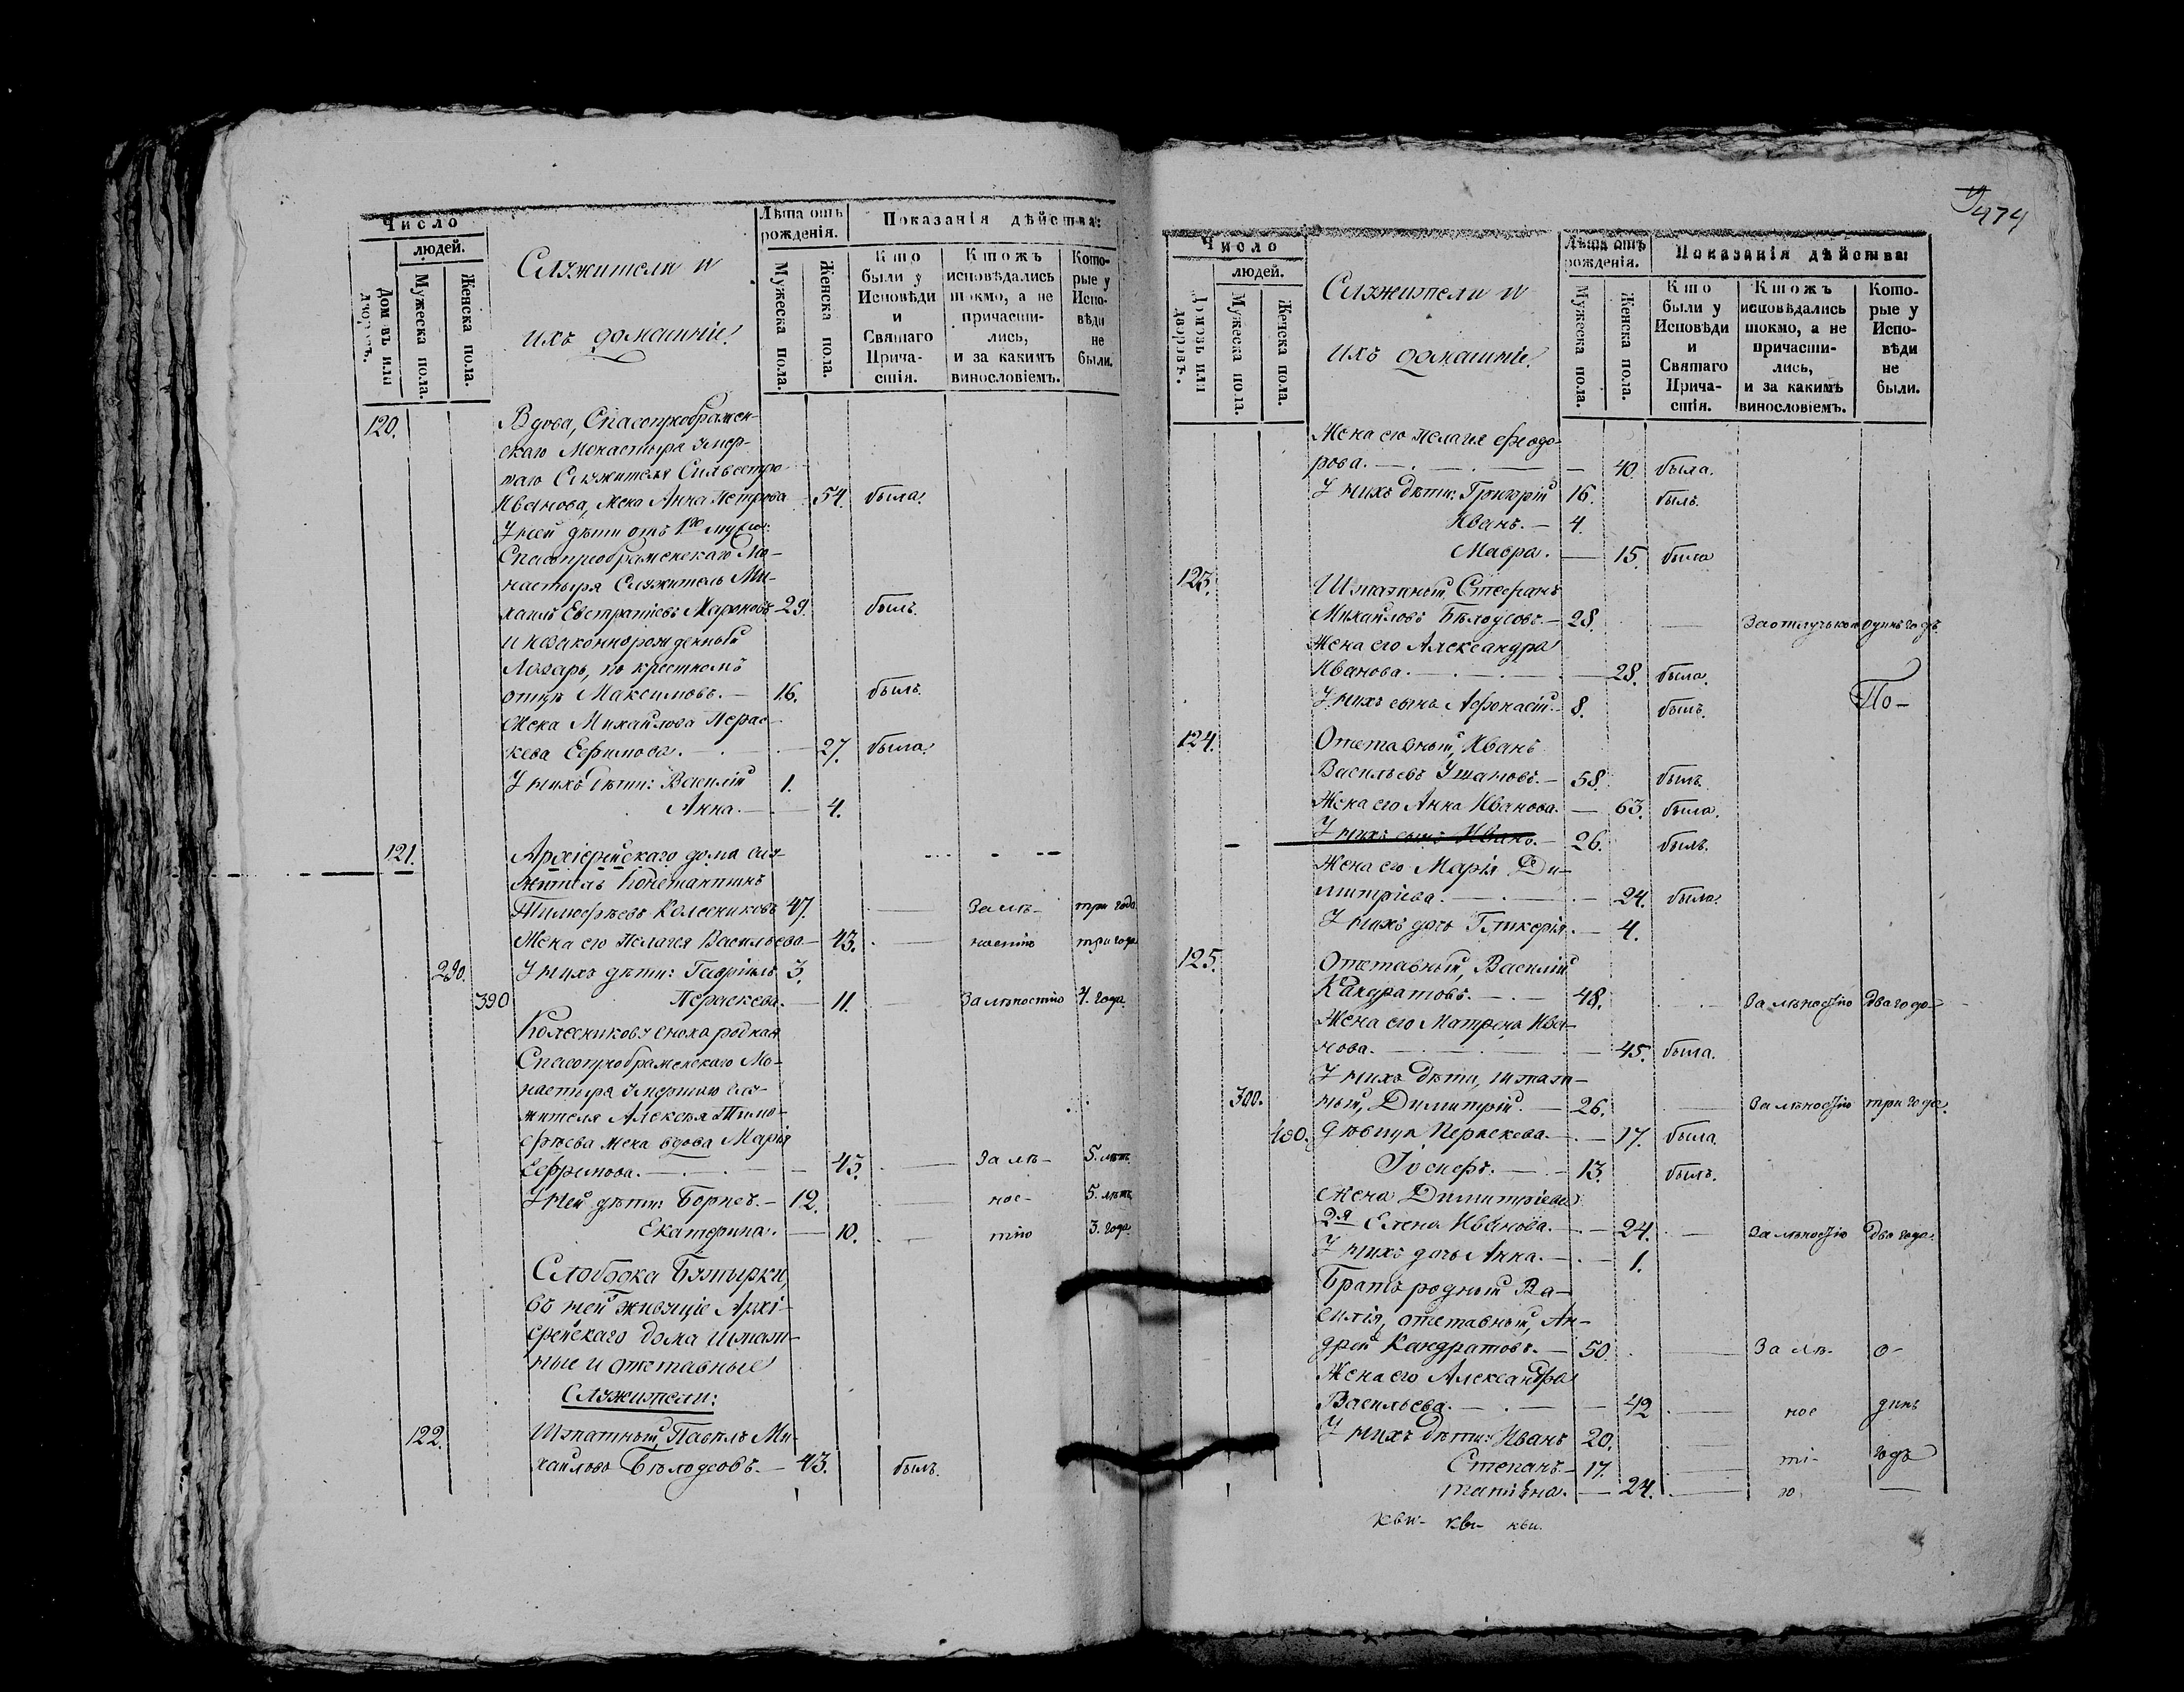 Число
людей.
Домовъ или дворовъ.
Мужеска пола.
Женска пола.
Служители и
ихъ домашніе.
Лѣта отъ
рожденія.
Мужеска пола.
Женска пола.
Показанія дѣйства:
Кто
были у
Исповѣди
и
Святаго
Прича-
стія.
Ктожъ
исповѣдались
токмо, а не
причасти-
лись,
и за какимъ
винословіемъ.
Кото-
рые у
Испо-
вѣди
не
были.
120. Вдова, Спасопреображен-
скаго Монастыря умер-
шаго Служителя Сильвестра
Иванова, жена Анна Петрова 54. была.
У ней дѣти отъ 1го мужа:
Спасопреображенскаго Мо-
настыря Служитель Ми-
хаилъ Евстратіевъ Мароновъ 29. былъ.
и незаконнорожденный
Лазарь, по крестномъ
отцѣ Максимовъ. — 16. былъ.
Жена Михайлова Парас-
кева Ефимова. — 27. была.
У нихъ дѣти: Василій 1.
Анна. — 4.
121. Архіерейскаго дома слу-
житель Константинъ
Тимофѣевъ Колесниковъ 47. — За лѣ- три года.
Жена его Пелагея Васильева — 43. — ностію три года
290. У нихъ дѣти: Гавріилъ 3.
390 Параскева. — 11. — За лѣностію 4. года.
Колесникову сноха родная
Спасопреображенскаго Мо-
настыря умершаго слу-
жителя Алексѣя Тимо-
фѣева жена вдова Марія
Ефримова. — 43. — За лѣ- 5. лѣтъ.
У ней дѣти: Борисъ. — 12. — нос- 5. лѣтъ
Екатерина. — 10. — тію 3. года
Слободка Бутырки,
въ ней живущіе Архі-
ерейскаго дома штат-
ные и отставные
Служители:
122. Штатный, Павелъ Ми-
хайловъ Бѣлодѣовъ. — 43. былъ.
474
Число
людей.
Домовъ или дворовъ.
Мужеска пола.
Женска пола.
Служители и
ихъ домашніе.
Лѣта отъ
рожденія.
Мужеска пола.
Женска пола.
Показанія дѣйства:
Кто
были у
Исповѣди
и
Святаго
Прича-
стія.
Ктожъ
исповѣдались
токмо, а не
причасти-
лись,
и за какимъ
винословіемъ.
Кото-
рые у
Испо-
вѣди
не
были.
Жена его Пелагея Феодо-
рова. — 40. была.
У нихъ дѣти: Григорій 16. былъ.
Иванъ. — 4.
Мавра. — 15. была
123. Штатный, Стефанъ
Михайловъ Бѣлодѣовъ. — 28. — За отлучкою одинъ годъ.
Жена его Александра
Иванова. — 28. была.
У нихъ сынъ Афонасій. — 8. былъ. По-
124. Отставный, Иванъ
Васильевъ Ушаковъ. — 58. былъ.
Жена его Анна Иванова. — 63. была.
У нихъ сынъ Иванъ. — 26. былъ.
Жена его Марія Ди-
митріева. — 24. была.
У нихъ дочь Гликерія. — 4.
125. Отставный, Василій
Кандратовъ. — 48. — За лѣностію два года
Жена его Матрена Ива-
нова. — 45. была.
У нихъ дѣти, штат-
300. ный, Димитрій. — 26. — За лѣностію три года.
400. дѣвица Параскева. — 17. была
Іосифъ. — 13. былъ.
Жена Димитріева
2я Елена Иванова. — 24. — За лѣностію два года.
У нихъ дочь Анна. — 1.
Братъ родный Ва-
силія, отставный, Ан-
дрей Кандратовъ. — 50. — За лѣ- о-
Жена его Александра
Васильева. — 42 — нос динъ
У нихъ дѣти: Иванъ 20. — ті- годъ
Степанъ. — 17. —
Татіяна. — 24. — ю —